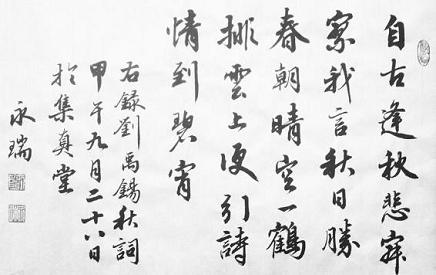 自古逢秋悲寂
寥我言秋日勝
春朝晴空一鶴
排雲上便引詩
情到碧霄
右錄劉禹錫秋詞
甲午九月二十八日
於集真堂
永瑞